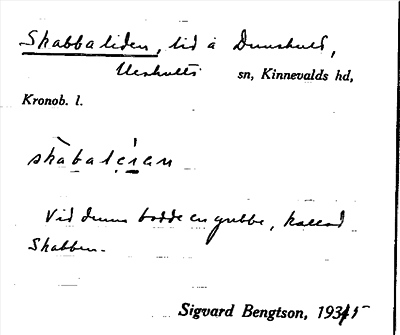 Skabbaliden, lid å Dunshult,
Urshults sn, Kinnevalds hd,
Kronob. l.
skàbalėian
Vid denna bodde en gubbe, kallad
Skabben.
Sigvard Bengtson, 1935